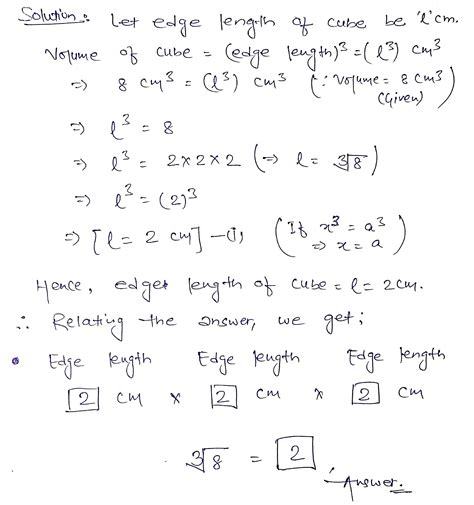 Solution: Let edge length of cube be 'l' cm.
Volume of cube = (edge length)³ = (l³) cm³
=> 8 cm³ = (l³) cm³ (∵ Volume = 8 cm³)
(Given)
=> l³ = 8
=> l³ = 2×2×2 (=> l = ∛8)
=> l³ = (2)³
=> [l = 2 cm] —(1) (If x³ = a³
=> x = a)
Hence, edge length of cube = l = 2cm.
∴ Relating the answer, we get;
• Edge length Edge length Edge length
2 cm × 2 cm × 2 cm
∛8 = 2
Answer.